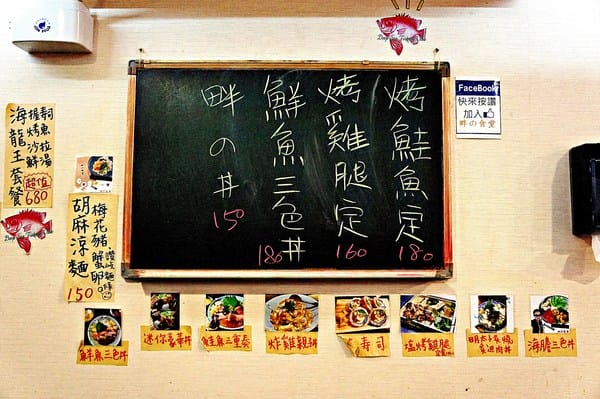 烤鮭魚定 180
烤雞腿定 160
鮮魚三色丼 180
畔の丼 150
FaceBook
快來按讚
加入
畔の食堂
壽司
握魚拉
烤沙湯
鮮
海龍王套餐
超值
680
梅花豬蟹卵
胡麻涼麵
150
鮮魚三色丼
迷你豪華丼
鮭魚三重奏
炸雞親丼
壽司
塩烤雞腿
海膽三色丼